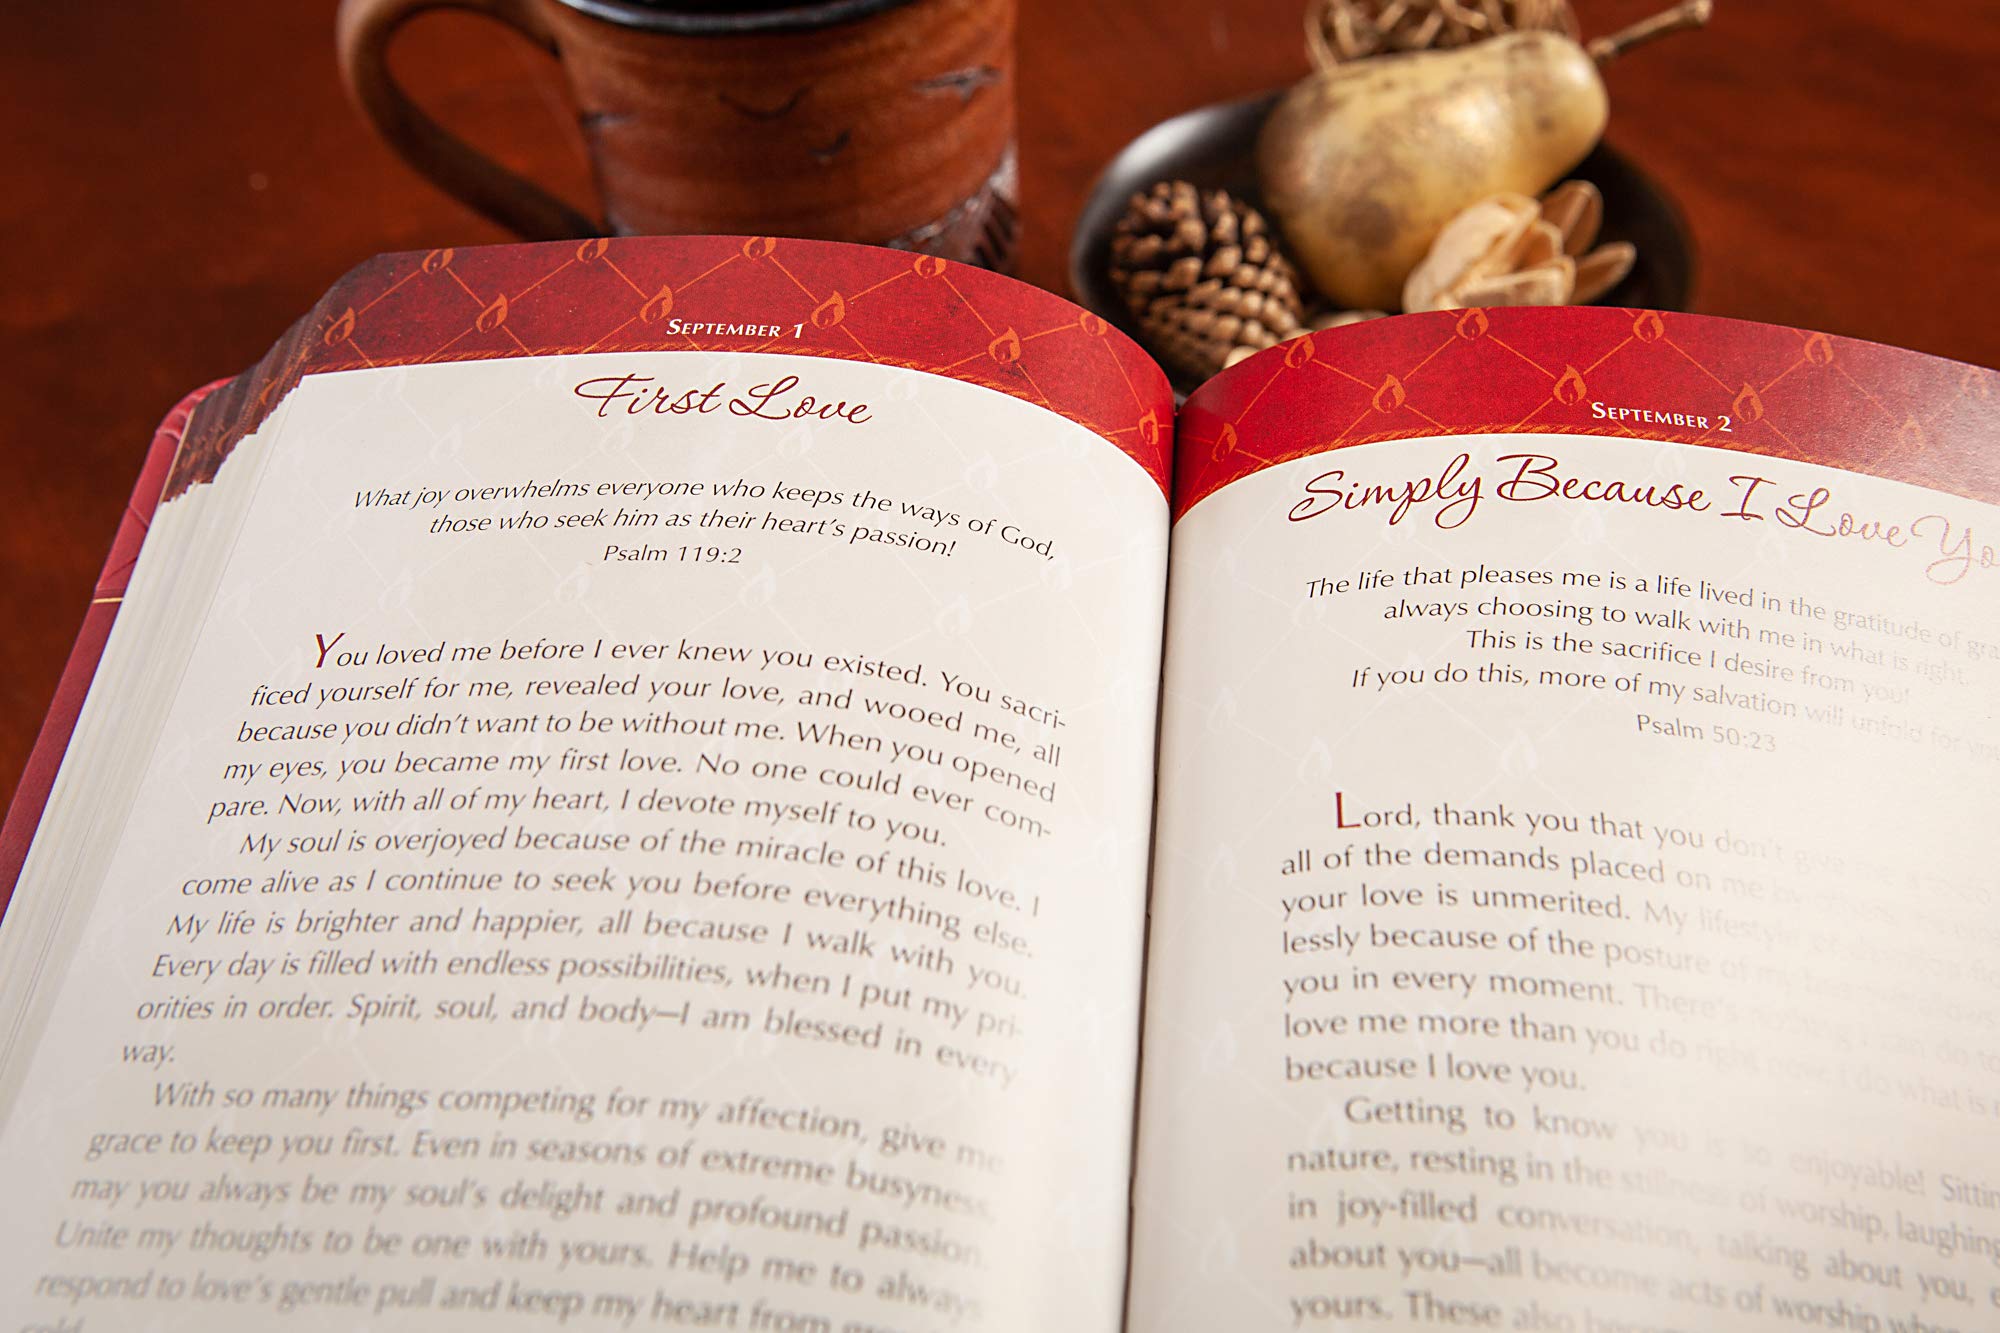 September 1
First Love
What joy overwhelms everyone who keeps the ways of God,
those who seek him as their heart's passion!
Psalm 119:2
You loved me before I ever knew you existed. You sacri-
ficed yourself for me, revealed your love, and wooed me, all
because you didn't want to be without me. When you opened
my eyes, you became my first love. No one could ever com-
pare. Now, with all of my heart, I devote myself to you.
My soul is overjoyed because of the miracle of this love. I
come alive as I continue to seek you before everything else.
My life is brighter and happier, all because I walk with you.
Every day is filled with endless possibilities, when I put my pri-
orities in order. Spirit, soul, and body—I am blessed in every
way.
With so many things competing for my affection, give me
grace to keep you first. Even in seasons of extreme busyness,
may you always be my soul's delight and profound passion.
Unite my thoughts to be one with yours. Help me to always
respond to love's gentle pull and keep my heart from
September 2
Simply Because I Love
The life that pleases me is a life lived in the gratitude of
always choosing to walk with me in what is right.
This is the sacrifice I desire from you!
If you do this, more of my salvation will unfold for
Psalm 50:23
Lord, thank you that you don't give
all of the demands placed on me by
your love is unmerited. My lifestyle of
lessly because of the posture of my
you in every moment. There's nothing I can do to
love me more than you do right now. I do what is
because I love you.
Getting to know you is so enjoyable!
nature, resting in the stillness of worship, laughing
in joy-filled conversation, talking about you,
about you—all become acts of worship
yours. These also